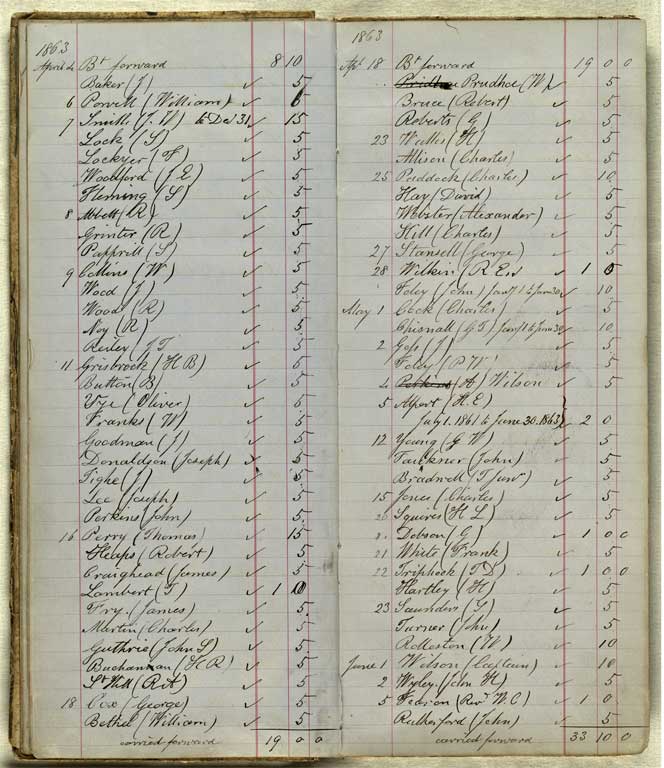 1863
April 4 Bt forward 8 10
Baker (J) ✓ 5
6 Powell (William) ✓ 5
7 Smith (J. W) to Dec 31 ✓ 15
Lock (S) ✓ 5
Lockyer (F) ✓ 5
Woodford (J. E) ✓ 5
Fleming (S) ✓ 5
8 Abbott (R) ✓ 5
Grinter (R) ✓ 5
Pappritt (S) ✓ 5
9 Collins (W) ✓ 5
Wood (J) ✓ 5
Wood (R) ✓ 5
Noy (R) ✓ 5
Reiley (J T ✓ 5
11 Grisbrook (H B) ✓ 5
Button (B) ✓ 5
Vye (Oliver) ✓ 5
Franks (W) ✓ 5
Goodman (J) ✓ 5
Donaldson (Joseph) ✓ 5
Tighe (J) ✓ 5
Lee (Joseph) ✓ 5
Perkins (John) ✓ 5
16 Perry (Thomas) ✓ 15
Heaps (Robert) ✓ 5
Craighead (James) ✓ 5
Lambert (T) ✓ 1 10
Fry (James) ✓ 5
Martin (Charles) ✓ 5
Guthrie (John S) ✓ 5
Buchannan (H R) ✓ 5
✓ 5
18 Cox (George) ✓ 5
Bethel (William) ✓ 5
carried forward 19 0 0
1863
Apl 18 Bt forward 19 0 0
Prudhoe (W) ✓ 5
Bruce (Robert) ✓ 5
Roberts (G) ✓ 5
23 Wallis (H) ✓ 5
Allison (Charles) ✓ 5
25 Puddock (Charles) ✓ 10
Hay (David) ✓ 5
Webster (Alexander) ✓ 5
Hill (Charles) ✓ 5
27 Stansell (George) ✓ 5
28 Wilkin (R E ✓ 1 0
Foley (John) Jany 1 to June 30 ✓ 10
May 1 Cock (Charles) ✓ 5
Chisnall (G T) Jany 1 to June 30 ✓ 10
2 Goss (J) ✓ 5
Foley (P W) ✓ 5
4 Perkins (A) Wilson ✓ 5
5 Alport (H. E)
July 1. 1861 to June 30. 1863 } ✓ 2 0
12 Young (G W) ✓ 5
Faulkner (John) ✓ 5
Bradwell (T Junr) ✓ 5
15 Jones (Charles) ✓ 5
20 Squires (H L) ✓ 5
Dobson (G) ✓ 1 0 0
21 White (Frank) ✓ 5
22 Triphook (T D) ✓ 1 0 0
Hartley (H) ✓ 5
23 Saunders (J) ✓ 5
Turner (John) ✓ 5
Rolleston (W) ✓ 10
June 1 Wilson (Captain) ✓ 10
2 Wyley (John H) ✓ 5
5 Febson (Revd W. C) ✓ 1 0
Rutherford (John) ✓ 5
carried forward 33 10 0